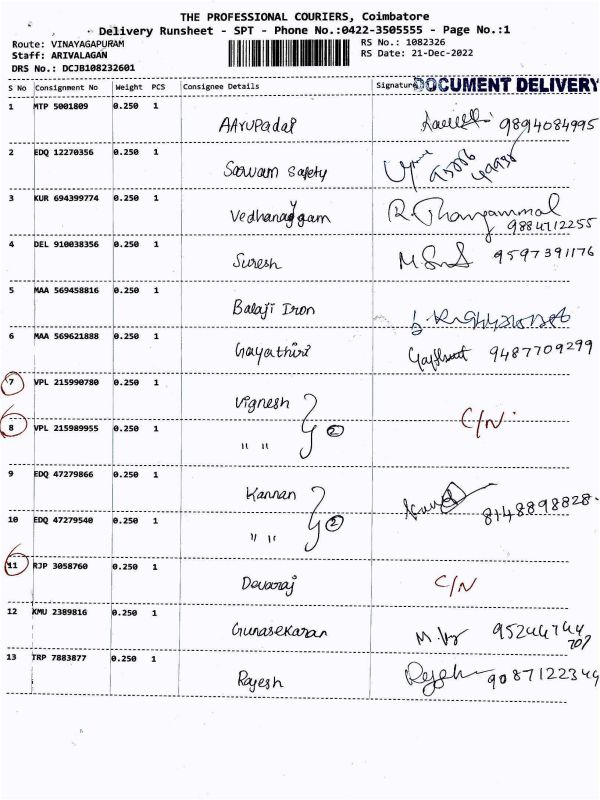 THE PROFESSIONAL COURIERS, Coimbatore
Delivery Runsheet - SPT - Phone No.:0422-3505555 - Page No.:1
Route: VINAYAGAPURAM
Staff: ARIVALAGAN
DRS No.: DCJB108232601
RS No.: 1082326
RS Date: 21-Dec-2022
S No Consignment No Weight PCS Consignee Details Signature
DOCUMENT DELIVERY
1 MTP 5001809 0.250 1
AArupadai 9894084995
2 EDQ 12270356 0.250 1
Saawam Safety
3 KUR 694399774 0.250 1
Vedhanayagam R. Thangammal
9884712255
4 DEL 910038356 0.250 1
Suresh 9597391176
5 MAA 569458816 0.250 1
Balaji Iron
6 MAA 569621888 0.250 1
Gayathiri 9487709299
7 VPL 215990780 0.250 1
Vignesh
C/N
8 VPL 215989955 0.250 1
2
" "
9 EDQ 47279866 0.250 1
Kannan
8148898828
10 EDQ 47279540 0.250 1
2
" "
11 RJP 3058760 0.250 1
Devaraj C/N
12 KMU 2389816 0.250 1
Gunasekaran
13 TRP 7883877 0.250 1
Rajesh 9087122344